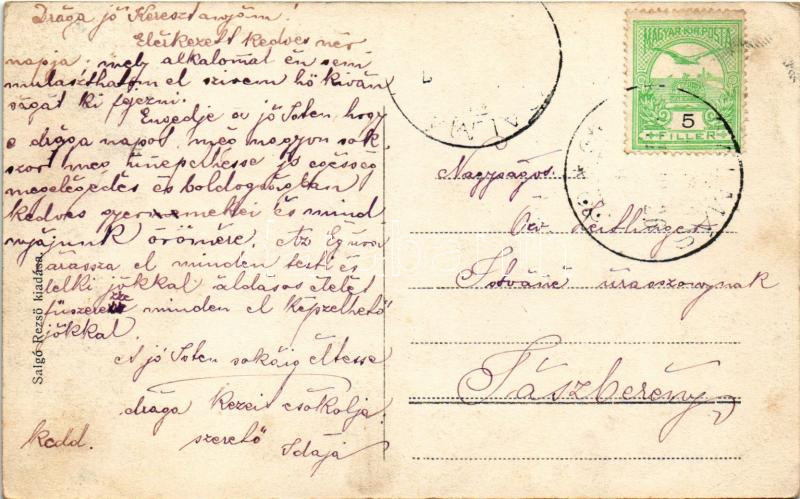 Drága jó Keresztanyám!
Elérkezett kedves név
napja, mely alkalomat én sem
mulaszthatom el szivem hő kiván
ságát ki fejezni.
Engedje a jó Isten, hogy
e drága napot, még nagyon sok
szor meg ünnepelhesse jó egésség
megelégedés és boldogságban
kedves gyermekei és mind
nyájunk örömére. Az Ég ura
árassza el minden testi és
lelki jókkal áldásos életét
fűszerezze minden el képzelhető
jókkal.
A jó Isten sokáig éltesse
drága kezeit csókolja
kedd. szerető
Idája
Salgó Rezső kiadása.
MAGYAR KIR. POSTA
5
FILLER
Nagyságos
Özv
Istvánné úrasszonynak
Jászberény